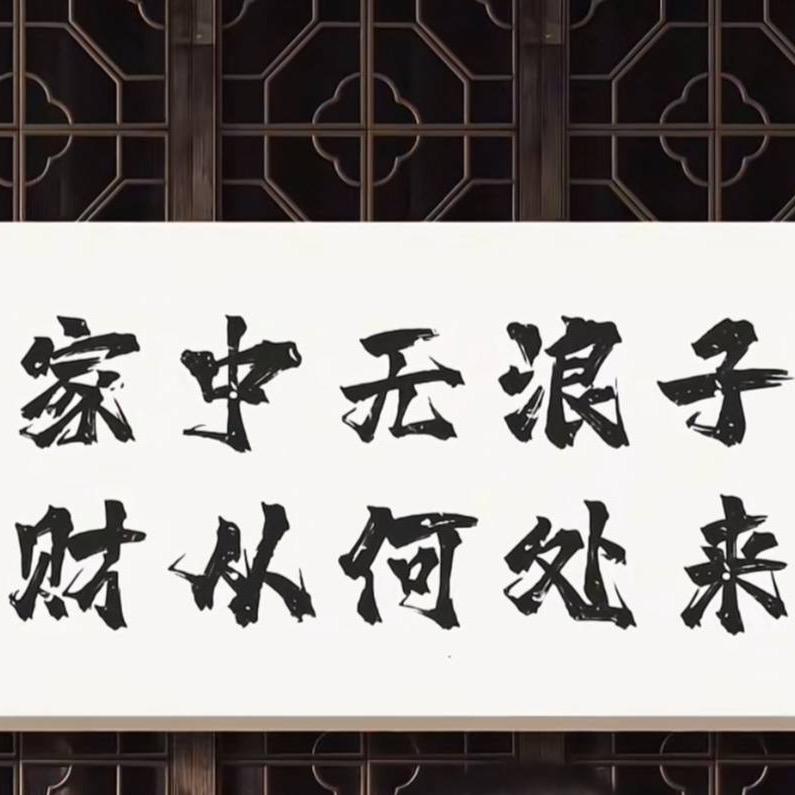 家中无浪子
财从何处来